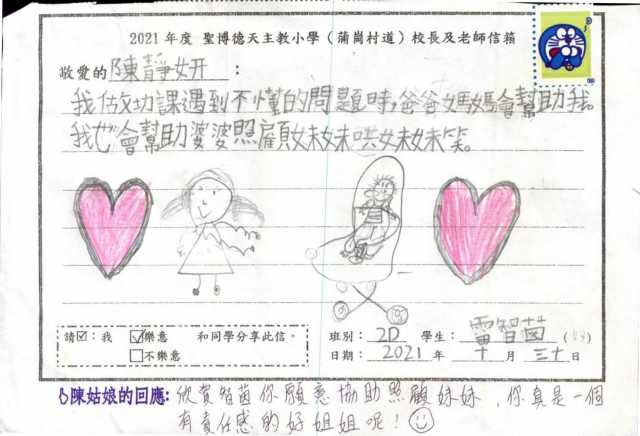 2021 年度 聖博德天主教小學（蒲崗村道）校長及老師信箱
敬愛的 陳靜妍：
我做功課遇到不懂的問題時，爸爸媽媽會幫助我。
我也會幫助婆婆照顧妹妹哄妹妹笑。
請☑：我 ☑樂意 和同學分享此信。
□不樂意
班別： 2D 學生： 雷智茵
日期： 2021 年 十 月 三十 日
陳姑娘的回應: 欣賞智茵你願意協助照顧妹妹，你真是一個
有責任感的好姐姐呢！